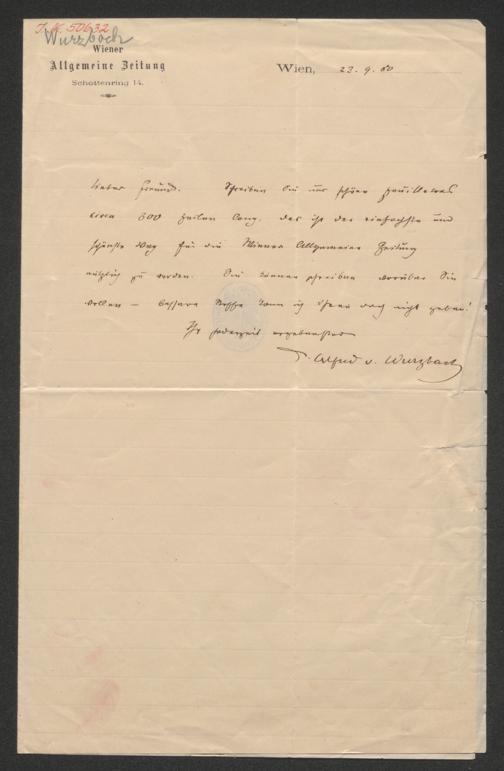 I. N. 50632
Wurzbach
Wiener
Allgemeine Zeitung
Schottenring 14.
Wien, 23. 9. 80
Lieber Freund. Schreiben Sie uns schöne Feuilletons
circa 300 Zeilen lang. Das ist der einfachste und
schönste Weg für die Wiener Allgemeine Zeitung
nützlich zu werden. Sie können schreiben worüber Sie
wollen — bessere Stoffe kann ich Ihnen doch nicht geben!
Ihr jederzeit ergebenster
Alfred v. Wurzbach